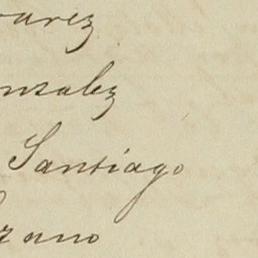 varez
nzalez
Santiago
zano